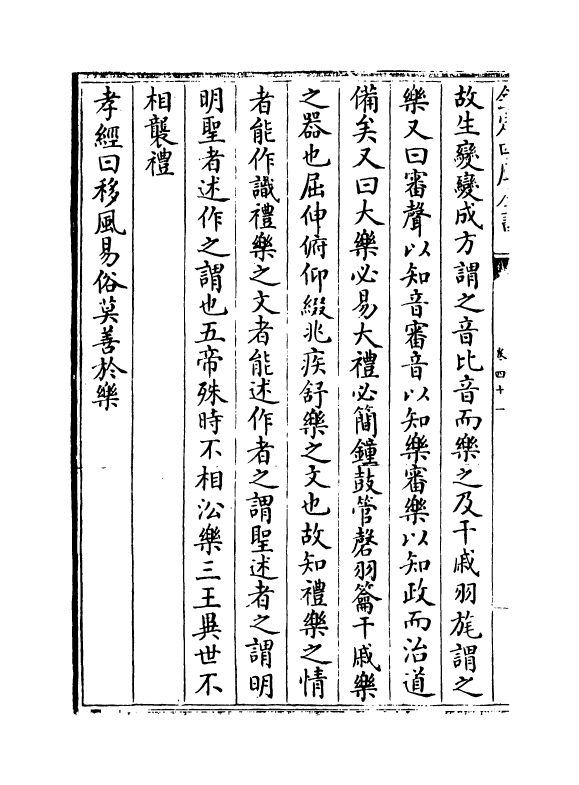 故生變變成方謂之音比音而樂之及干戚羽旄謂之
樂又曰審聲以知音審音以知樂審樂以知政而治道
備矣又曰大樂必易大禮必簡鐘鼓管磬羽籥干戚樂
之器也屈伸俯仰綴兆疾舒樂之文也故知禮樂之情
者能作識禮樂之文者能述作者之謂聖述者之謂明
明聖者述作之謂也五帝殊時不相㳂樂三王異世不
相襲禮
孝經曰移風易俗莫善於樂
卷四十一